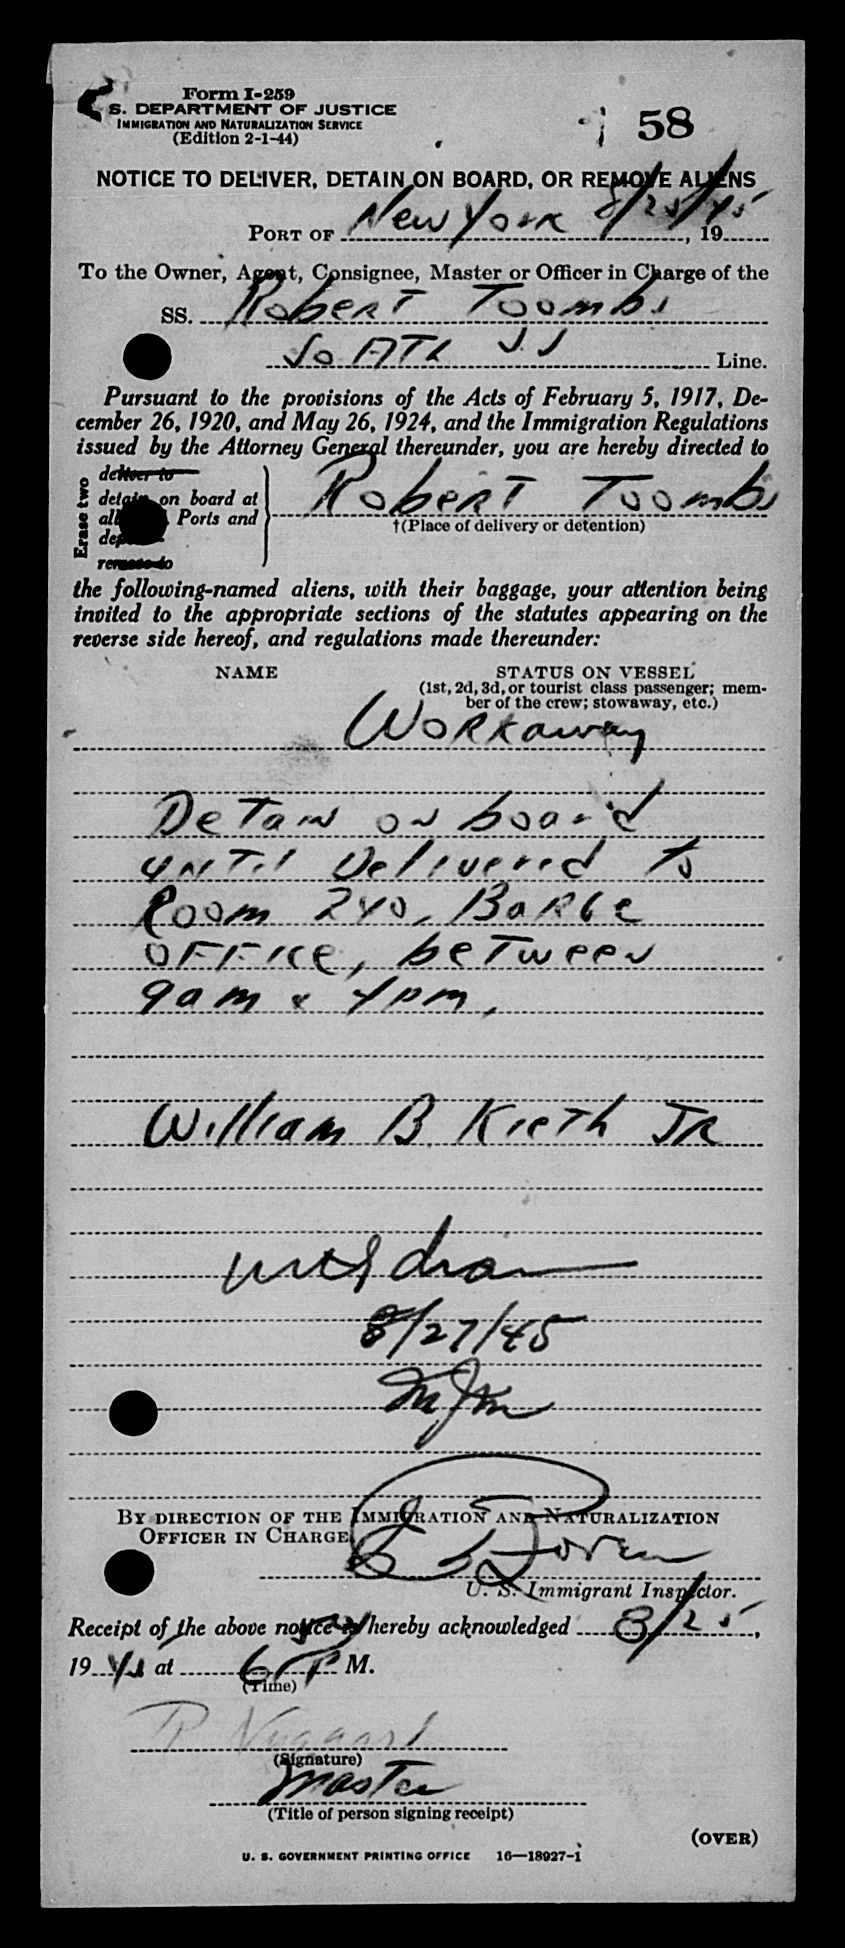 Form I-259
S. DEPARTMENT OF JUSTICE
IMMIGRATION AND NATURALIZATION SERVICE
(Edition 2-1-44)
58
NOTICE TO DELIVER, DETAIN ON BOARD, OR REMOVE ALIENS
PORT OF New York 8/25/45, 19
To the Owner, Agent, Consignee, Master or Officer in Charge of the
SS. Robert Toombs
So ATL SS Line.
Pursuant to the provisions of the Acts of February 5, 1917, De-
cember 26, 1920, and May 26, 1924, and the Immigration Regulations
issued by the Attorney General thereunder, you are hereby directed to
Erase two
deliver to
detain on board at
all Ports and
remove to
Robert Toombs
†(Place of delivery or detention)
the following-named aliens, with their baggage, your attention being
invited to the appropriate sections of the statutes appearing on the
reverse side hereof, and regulations made thereunder:
NAME STATUS ON VESSEL
(1st, 2d, 3d, or tourist class passenger; mem-
ber of the crew; stowaway, etc.)
Workaway
Detain on board
until Delivered to
Room 240, Barge
Office, between
9am & 4pm.
William B Kieth JR
8/27/45
BY DIRECTION OF THE IMMIGRATION AND NATURALIZATION
OFFICER IN CHARGE
U. S. Immigrant Inspector.
Receipt of the above notice is hereby acknowledged 8/25,
19 45 at 6 P M.
(Time)
(Signature)
Master
(Title of person signing receipt)
(OVER)
U. S. GOVERNMENT PRINTING OFFICE 16—18927-1